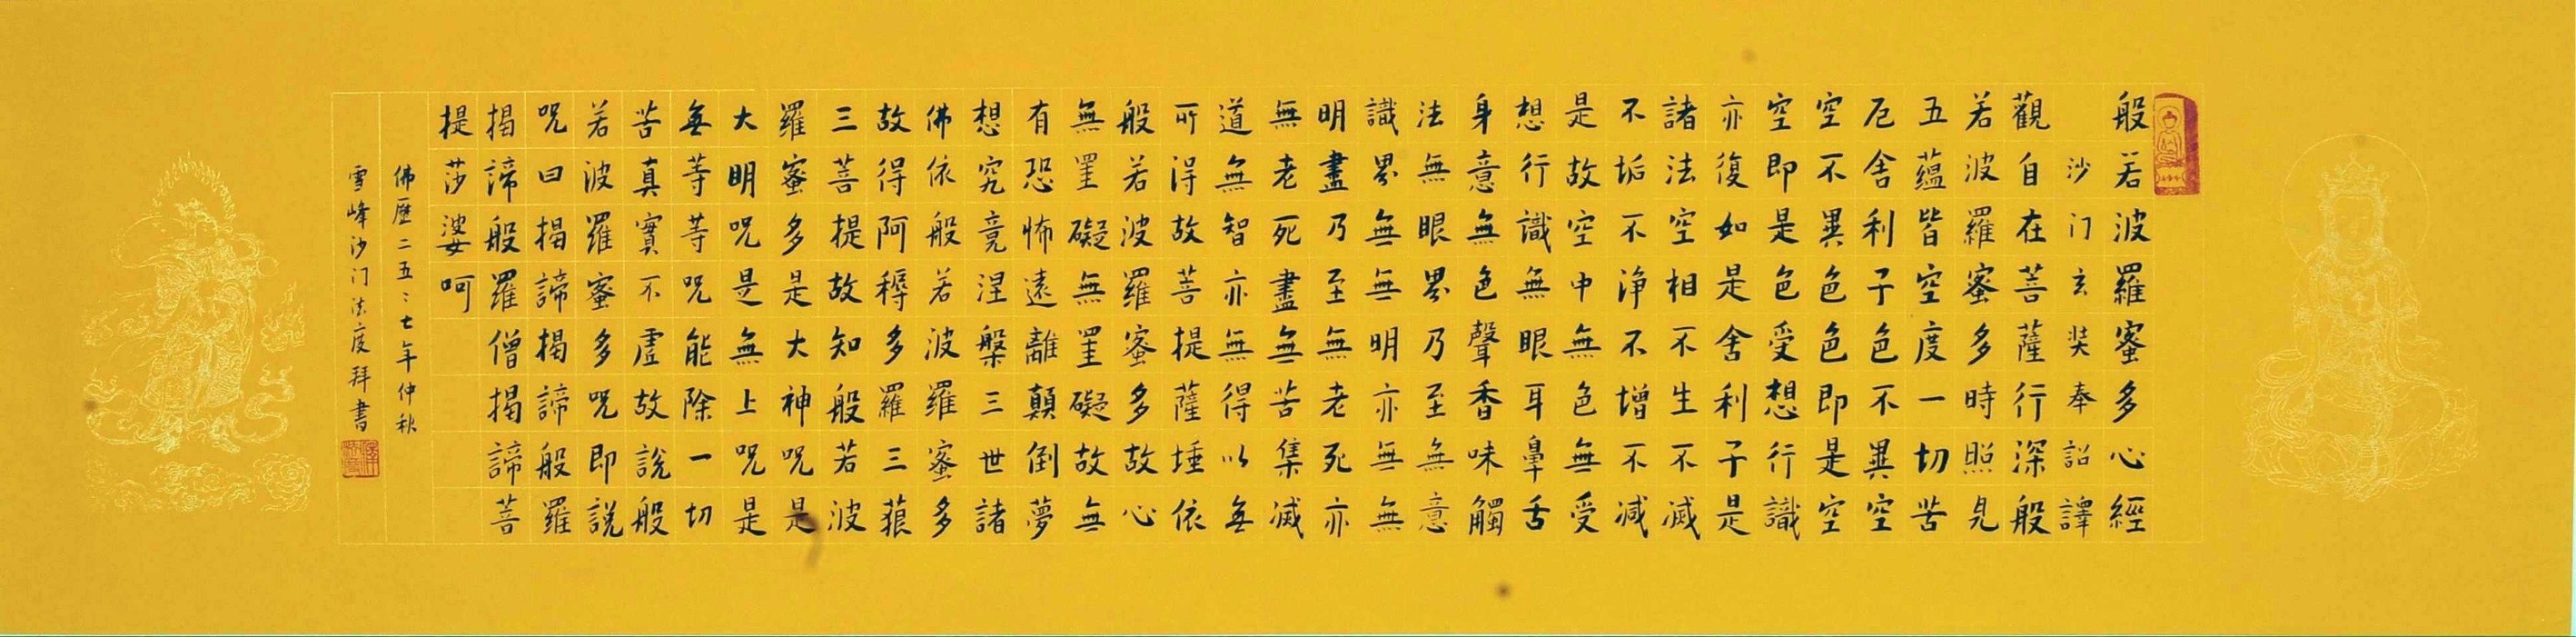 般若波羅蜜多心經
沙门玄奘奉詔譯
觀自在菩薩行深般
若波羅蜜多時照見
五蘊皆空度一切苦
厄舍利子色不異空
空不異色色即是空
空即是色受想行識
亦復如是舍利子是
諸法空相不生不滅
不垢不淨不增不减
是故空中無色無受
想行識無眼耳鼻舌
身意無色聲香味觸
法無眼界乃至無意
識界無無明亦無無
明盡乃至無老死亦
無老死盡無苦集滅
道無智亦無得以無
所得故菩提薩埵依
般若波羅蜜多故心
無罣礙無罣礙故無
有恐怖遠離顛倒夢
想究竟涅槃三世諸
佛依般若波羅蜜多
故得阿耨多羅三藐
三菩提故知般若波
羅蜜多是大神咒是
大明咒是無上咒是
無等等咒能除一切
苦真實不虛故說般
若波羅蜜多咒即說
咒曰揭諦揭諦般羅
揭諦般羅僧揭諦菩
提莎婆呵
佛歷二五二七年仲秋
雪峰沙门法度拜書